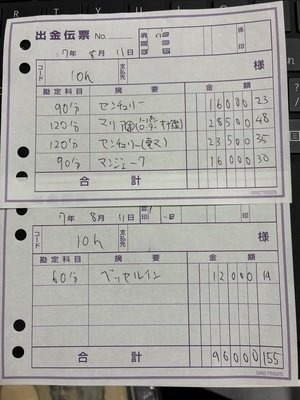 出金伝票 No.
7年 8月 11日
コード 10h 支払先 様
勘定科目 摘要 金額
90分 センチュリー 16000 23
120分 マリ 28500 48
120分 センチュリー 23500 35
90分 マンジェーク 16000 30
合計
GR275526
7年 8月 11日 印
コード 10h 支払先 様
勘定科目 摘要 金額
60分 ベッセルイン 12000 19
合計 96000 155
GR275526